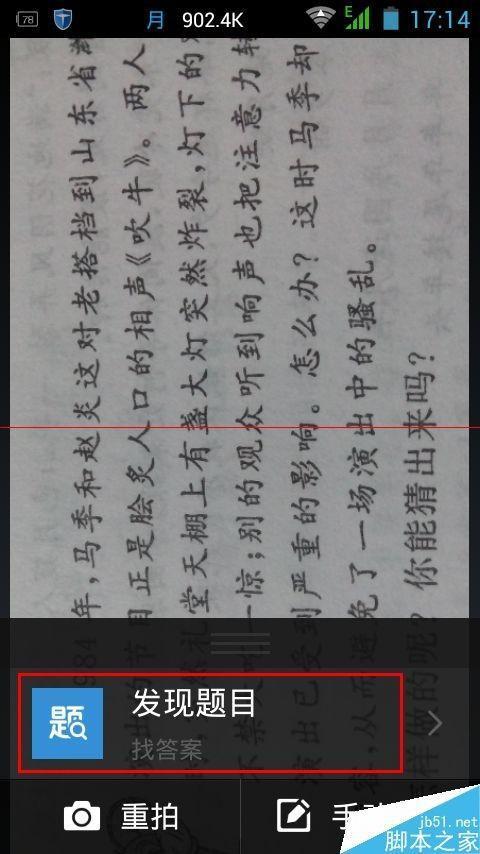 78
月
902.4K
E
17:14
984年,马季和赵炎这对老搭档到山东省潍
出的节目正是脍炙人口的相声《吹牛》。两人
然礼堂天棚上有盏大灯突然炸裂,灯下的
不禁大吃一惊;别的观众听到响声也把注意力转
演出已受到严重的影响。怎么办?这时马季却
容,从而避免了一场演出中的骚乱。
样做的呢?你能猜出来吗?
题
发现题目
找答案
重拍
手
jb51.net
脚本之家